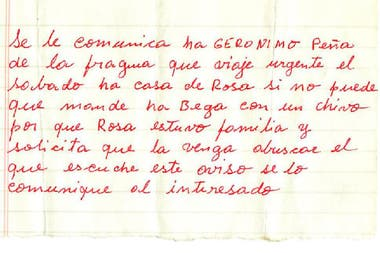 Se le comunica ha GERONIMO Peña
de la fragua que viaje urgente el
sabado ha casa de Rosa si no puede
que mande ha Bega con un chivo
por que Rosa estuvo familia y
solicita que la venga abuscar el
que escuche este aviso se lo
comunique al interesado